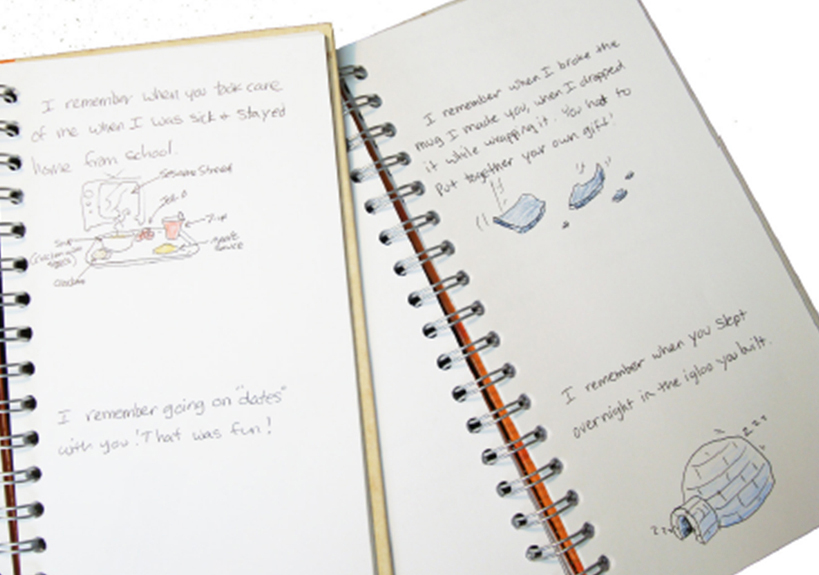 I remember when you took care
of me when I was sick & stayed
home from school.
Sesame Street
Jell-O
7-up
apple
sauce
Soup
(chicken
I remember going on "dates"
with you! That was fun!
I remember when I broke the
mug I made you, when I dropped
it while wrapping it. You had to
put together your own gift!
I remember when you slept
overnight in the igloo you built.
z z z
z z